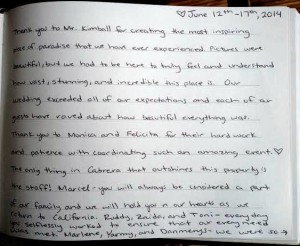 ♡June 12th-17th, 2014
Thank you to Mr. Kimball for creating the most inspiring
piece of paradise that we have ever experienced. Pictures were
beautiful, but we had to be here to truly feel and understand
how vast, stunning, and incredible this place is. Our
wedding exceeded all of our expectations and each of our
guests have raved about how beautiful everything was.
Thank you to Monica and Felicita for their hard work
and patience with coordinating such an amazing event.♡
The only thing in Cabrera that outshines this property is
the staff! Marcel-you will always be considered a part
of our family and we will hold you n our hearts as we
return to California. Ruddy, Zaida, and Toni-everyday
you selflessly worked to ensure that our every need
was met. Marlene, Yarmy, and Danmerys- we were so→